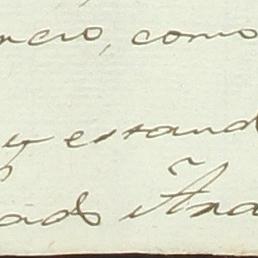 ncio, como
y estand
ado Ana